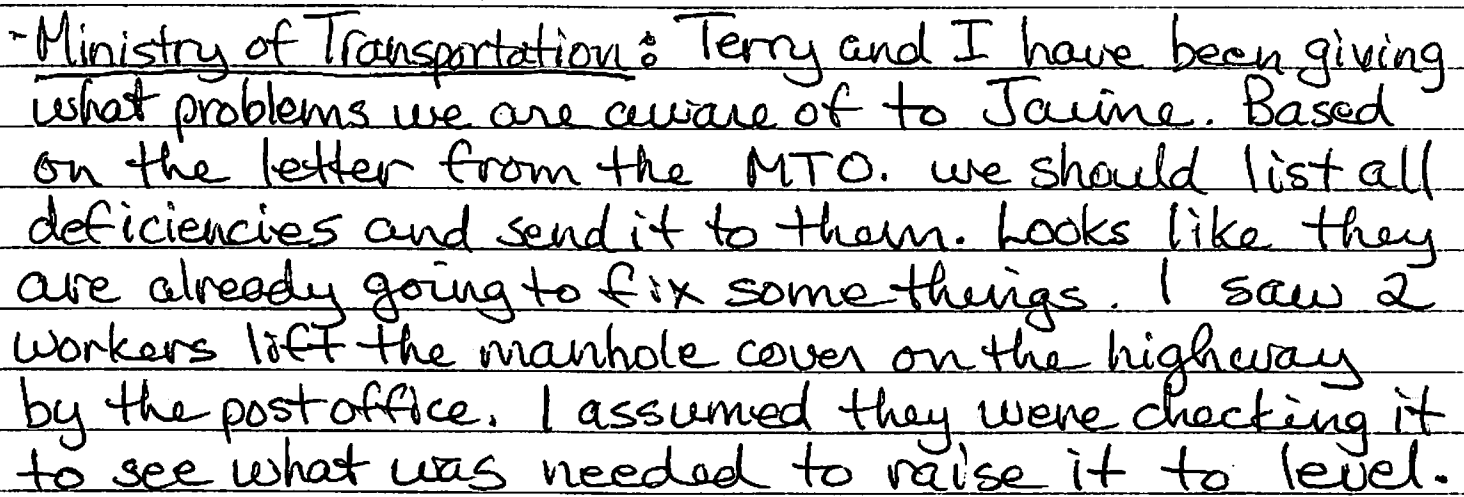 -Ministry of Transportation: Terry and I have been giving
what problems we are aware of to Jaime. Based
on the letter from the MTO. we should list all
deficiencies and send it to them. Looks like they
are already going to fix some things. I saw 2
workers lift the manhole cover on the highway
by the post office. I assumed they were checking it
to see what was needed to raise it to level.